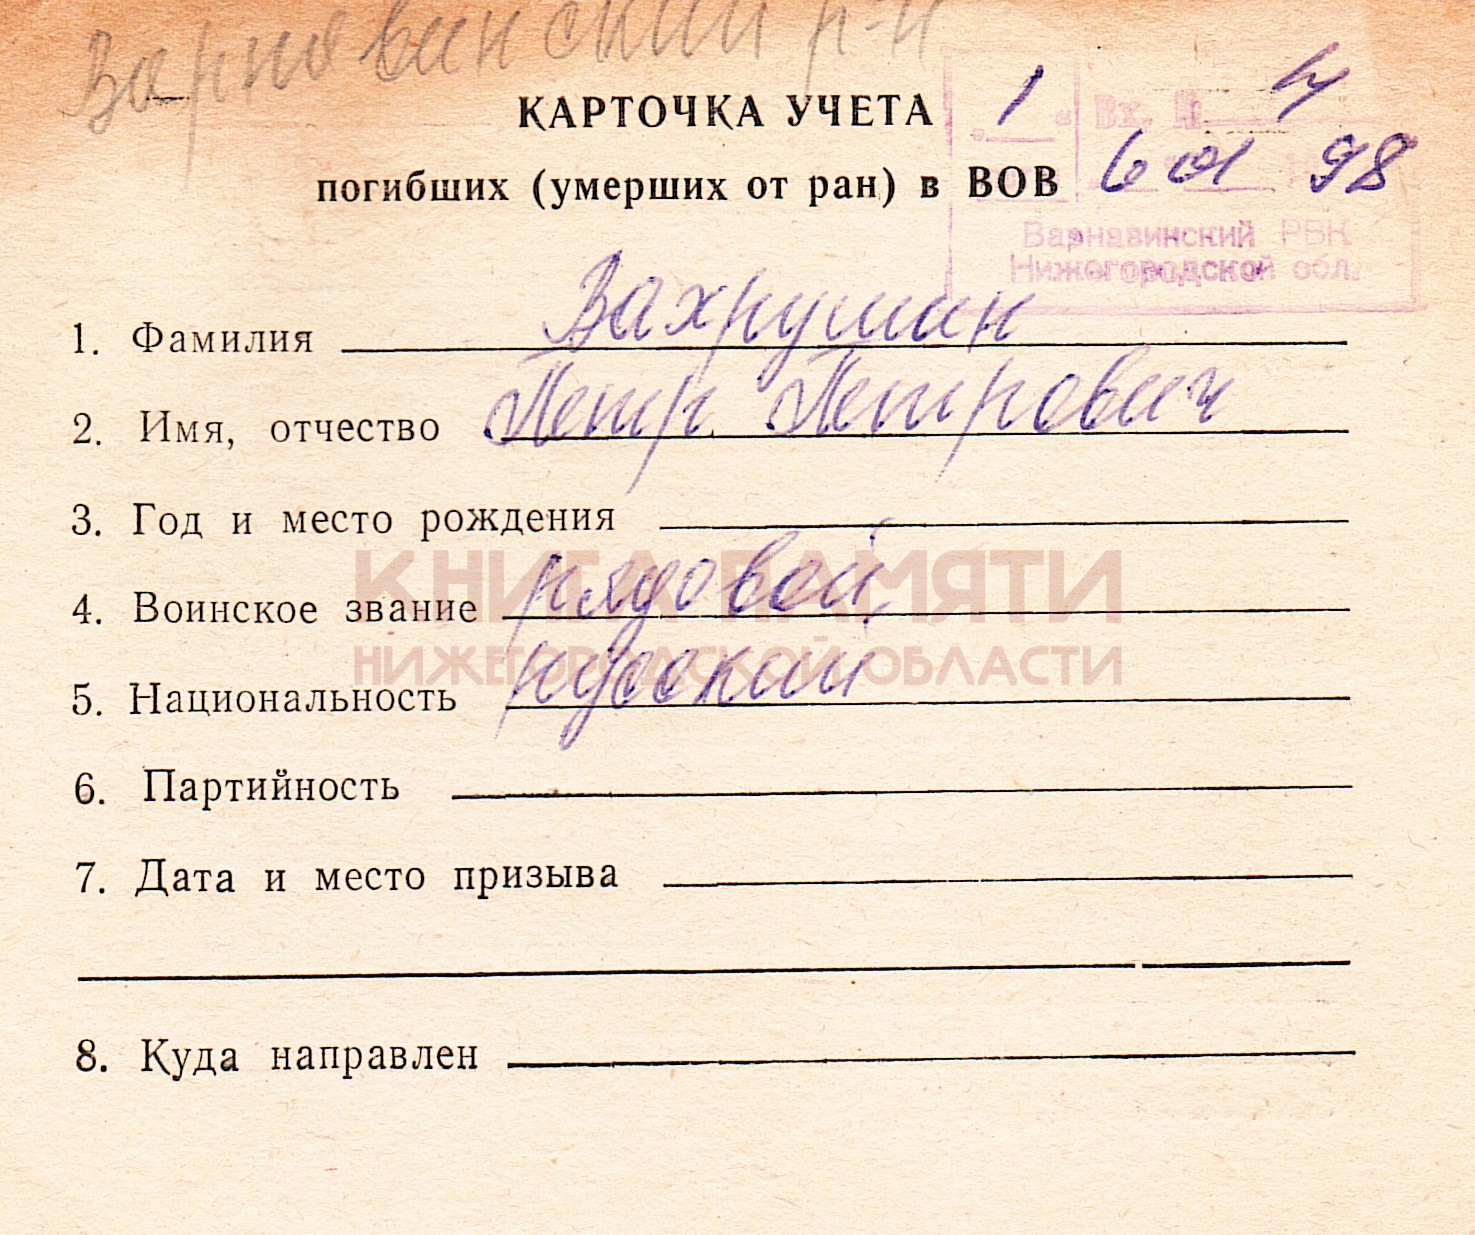 Варнавинский р-н
КАРТОЧКА УЧЕТА
погибших (умерших от ран) в ВОВ
1 Вх. № 4
6 01 98
Варнавинский РВК
Нижегородской обл.
1. Фамилия Вахрушин
2. Имя, отчество Петр Петрович
3. Год и место рождения
КНИГА ПАМЯТИ
4. Воинское звание рядовой
НИЖЕГОРОДСКОЙ ОБЛАСТИ
5. Национальность русский
6. Партийность
7. Дата и место призыва
8. Куда направлен